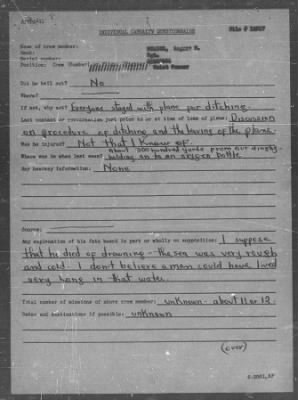 INDIVIDUAL CASUALTY QUESTIONNAIRE
Name of crew member:
Rank:
Serial number:
Position: Crew (Bomber) Waist Gunner
Did he bail out? No
Where?
If not, why not? Everyone stayed with plane for ditching.
Last contact or conversation just prior to or at time of loss of plane: Discussion
on procedure of ditching and the leaving of the plane.
Was he injured? Not that I know of
about 200 hundred yards from our dinghy
Where was he when last seen? holding on to an oxygen bottle
Any hearsay information: None
Source:
Any explanation of his fate based in part or wholly on supposition: I suppose
that he died of drowning - the sea was very rough
and cold. I don't believe a man could have lived
very long in that water.
Total number of missions of above crew member: unknown - about 11 or 12.
Dates and destinations if possible: unknown
(over)